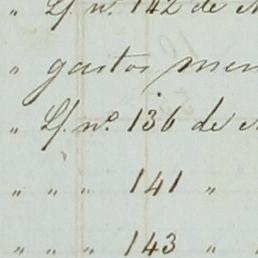 " Lf. nº 142 de
" gastos men
" Lf. nº 136 de
" " " 141 "
" " " 143 "